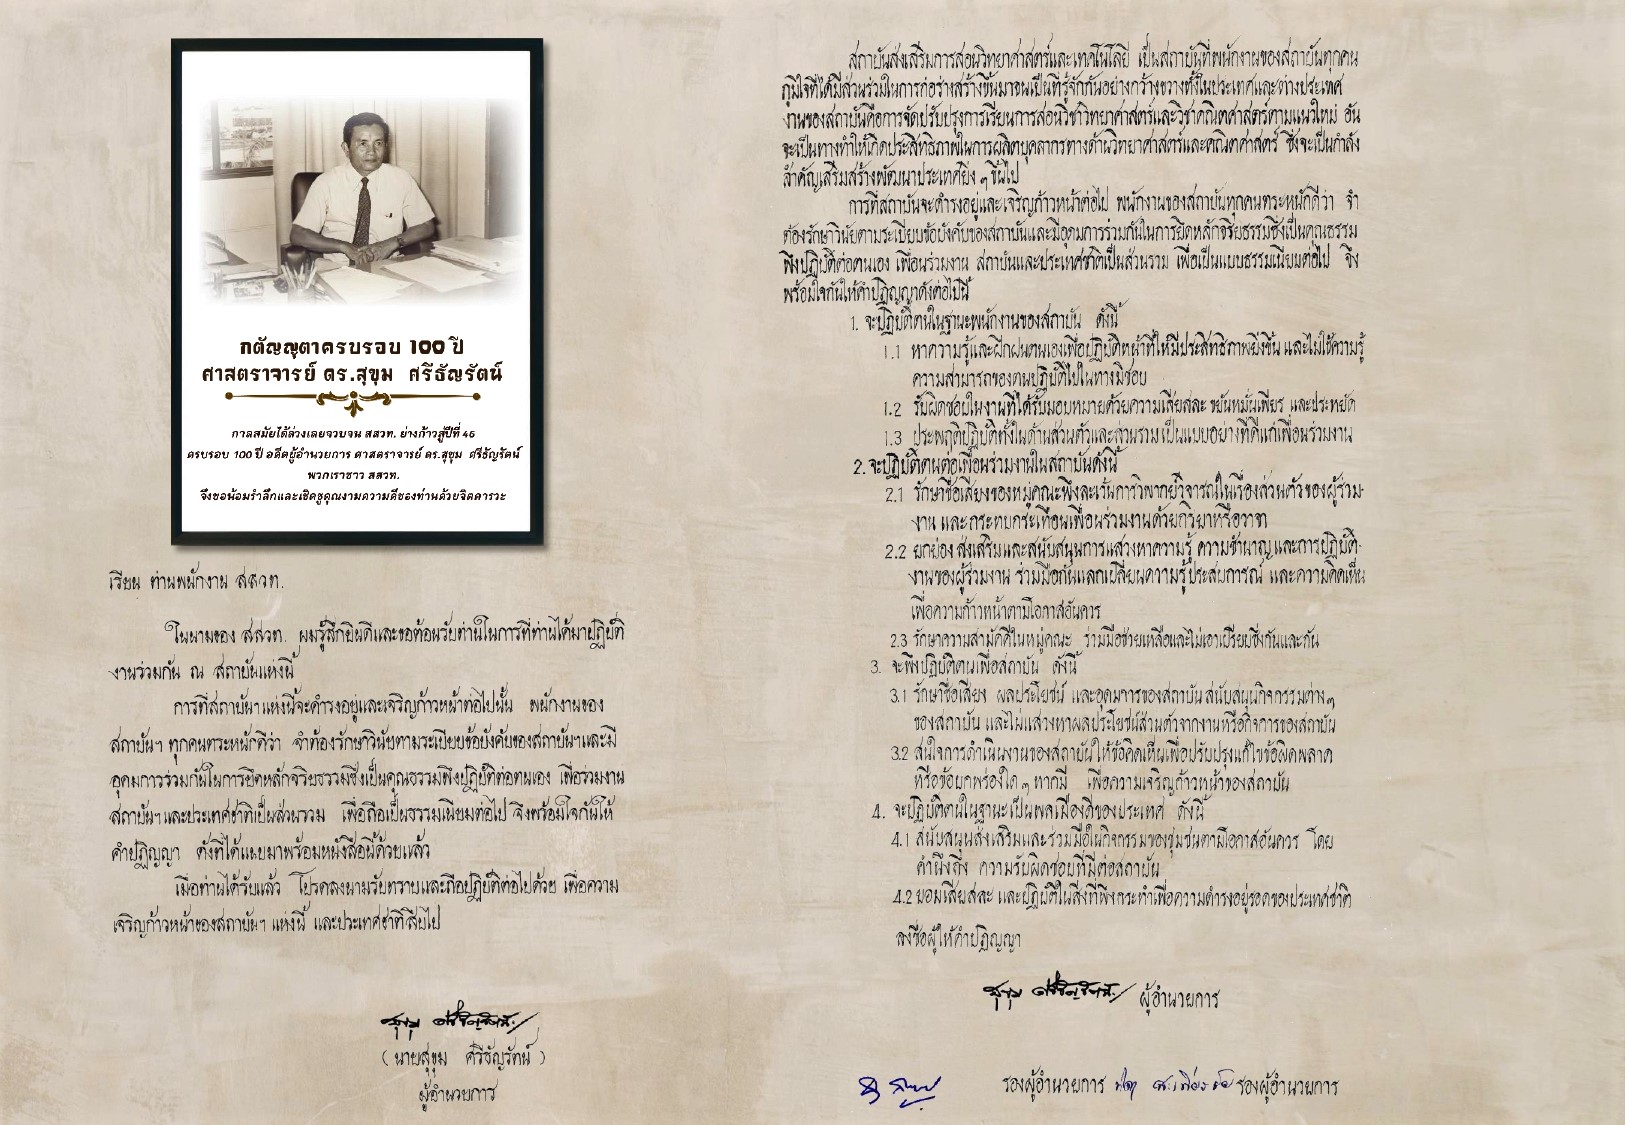 กตัญญุตาครบรอบ 100 ปี
ศาสตราจารย์ ดร.สุขุม ศรีธัญรัตน์
กาลสมัยได้ล่วงเลยจวบจน สสวท. ย่างก้าวสู่ปีที่ 46
ครบรอบ 100 ปี อดีตผู้อำนวยการ ศาสตราจารย์ ดร.สุขุม ศรีธัญรัตน์
พวกเราชาว สสวท.
จึงขอน้อมรำลึกและเชิดชูคุณงามความดีของท่านด้วยจิตคารวะ
เรียน ท่านพนักงาน สสวท.
ในนามของ สสวท. ผมรู้สึกยินดีและขอต้อนรับท่านในการที่ท่านได้มาปฏิบัติ
งานร่วมกัน ณ สถาบันแห่งนี้
การที่สถาบันฯ แห่งนี้จะดำรงอยู่และเจริญก้าวหน้าต่อไปนั้น พนักงานของ
สถาบันฯ ทุกคนตระหนักดีว่า จำต้องรักษาวินัยตามระเบียบข้อบังคับของสถาบันฯและมี
อุดมการร่วมกันในการยึดหลักจริยธรรมซึ่งเป็นคุณธรรมพึงปฏิบัติต่อตนเอง เพื่อร่วมงาน
สถาบันฯ และประเทศชาติเป็นส่วนรวม เพื่อถือเป็นธรรมเนียมต่อไป จึงพร้อมใจกันให้
คำปฏิญญา ดังที่ได้แนบมาพร้อมหนังสือนี้ด้วยแล้ว
เมื่อท่านได้รับแล้ว โปรดลงนามรับทราบและถือปฏิบัติต่อไปด้วย เพื่อความ
เจริญก้าวหน้าของสถาบันฯ แห่งนี้ และประเทศชาติสืบไป
สุขุม ศรีธัญรัตน์
( นายสุขุม ศรีธัญรัตน์ )
ผู้อำนวยการ
สถาบันส่งเสริมการสอนวิทยาศาสตร์และเทคโนโลยี เป็นสถาบันที่พนักงานของสถาบันทุกคน
ภูมิใจที่ได้มีส่วนร่วมในการก่อร่างสร้างขึ้นมาจนเป็นที่รู้จักกันอย่างกว้างขวางทั้งในประเทศและต่างประเทศ
งานของสถาบันคือการจัดปรับปรุงการเรียนการสอนวิชาวิทยาศาสตร์และวิชาคณิตศาสตร์ตามแนวใหม่ อัน
จะเป็นทางทำให้เกิดประสิทธิภาพในการผลิตบุคลากรทางด้านวิทยาศาสตร์และคณิตศาสตร์ ซึ่งจะเป็นกำลัง
สำคัญเสริมสร้างพัฒนาประเทศยิ่ง ๆ ขึ้นไป
การที่สถาบันจะดำรงอยู่และเจริญก้าวหน้าต่อไป พนักงานของสถาบันทุกคนตระหนักดีว่า จำ
ต้องรักษาวินัยตามระเบียบข้อบังคับของสถาบันและมีอุดมการร่วมกันในการยึดหลักจริยธรรมซึ่งเป็นคุณธรรม
พึงปฏิบัติต่อตนเอง เพื่อนร่วมงาน สถาบันและประเทศชาติเป็นส่วนรวม เพื่อเป็นแบบธรรมเนียมต่อไป จึง
พร้อมใจกันให้คำปฏิญญาดังต่อไปนี้
1. จะปฏิบัติตนในฐานะพนักงานของสถาบัน ดังนี้
1.1 หาความรู้และฝึกฝนตนเองเพื่อปฏิบัติหน้าที่ให้มีประสิทธิภาพยิ่งขึ้น และไม่ใช้ความรู้
ความสามารถของตนปฏิบัติไปในทางมิชอบ
1.2 รับผิดชอบในงานที่ได้รับมอบหมายด้วยความเสียสละ ขยันหมั่นเพียร และประหยัด
1.3 ประพฤติปฏิบัติทั้งในด้านส่วนตัวและส่วนรวม เป็นแบบอย่างที่ดีแก่เพื่อนร่วมงาน
2. จะปฏิบัติตนต่อเพื่อนร่วมงานในสถาบันดังนี้
2.1 รักษาชื่อเสียงของหมู่คณะพึงละเว้นการวิพากย์วิจารณ์ในเรื่องส่วนตัวของผู้ร่วม-
งาน และกระทบกระเทือนเพื่อนร่วมงานด้วยกิริยาหรือวาจา
2.2 ยกย่อง ส่งเสริมและสนับสนุนการแสวงหาความรู้ ความชำนาญ และการปฏิบัติ-
งานของผู้ร่วมงาน ร่วมมือกันแลกเปลี่ยนความรู้ประสบการณ์ และความคิดเห็น
เพื่อความก้าวหน้าตามโอกาสอันควร
2.3 รักษาความสามัคคีในหมู่คณะ ร่วมมือช่วยเหลือและไม่เอาเปรียบซึ่งกันและกัน
3. จะพึงปฏิบัติตนเพื่อสถาบัน ดังนี้
3.1 รักษาชื่อเสียง ผลประโยชน์ และอุดมการของสถาบัน สนับสนุนกิจกรรมต่างๆ
ของสถาบัน และไม่แสวงหาผลประโยชน์ส่วนตัวจากงานหรือกิจการของสถาบัน
3.2 สนใจการดำเนินงานของสถาบัน ให้ข้อคิดเห็นเพื่อปรับปรุงแก้ไขข้อผิดพลาด
หรือข้อบกพร่องใด ๆ หากมี เพื่อความเจริญก้าวหน้าของสถาบัน
4. จะปฏิบัติตนในฐานะเป็นพลเมืองดีของประเทศ ดังนี้
4.1 สนับสนุนส่งเสริมและร่วมมือในกิจกรรมของชุมชนตามโอกาสอันควร โดย
คำนึงถึง ความรับผิดชอบที่มีต่อสถาบัน
4.2 ยอมเสียสละ และปฏิบัติในสิ่งที่พึงกระทำเพื่อความดำรงอยู่รอดของประเทศชาติ
ลงชื่อผู้ให้คำปฏิญญา
สุขุม ศรีธัญรัตน์ ผู้อำนวยการ
รองผู้อำนวยการ รองผู้อำนวยการ